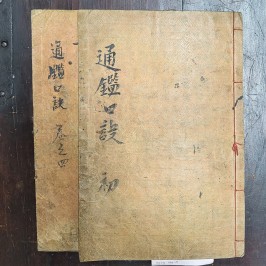 通鑑口訣 初
通鑑口訣 卷之四